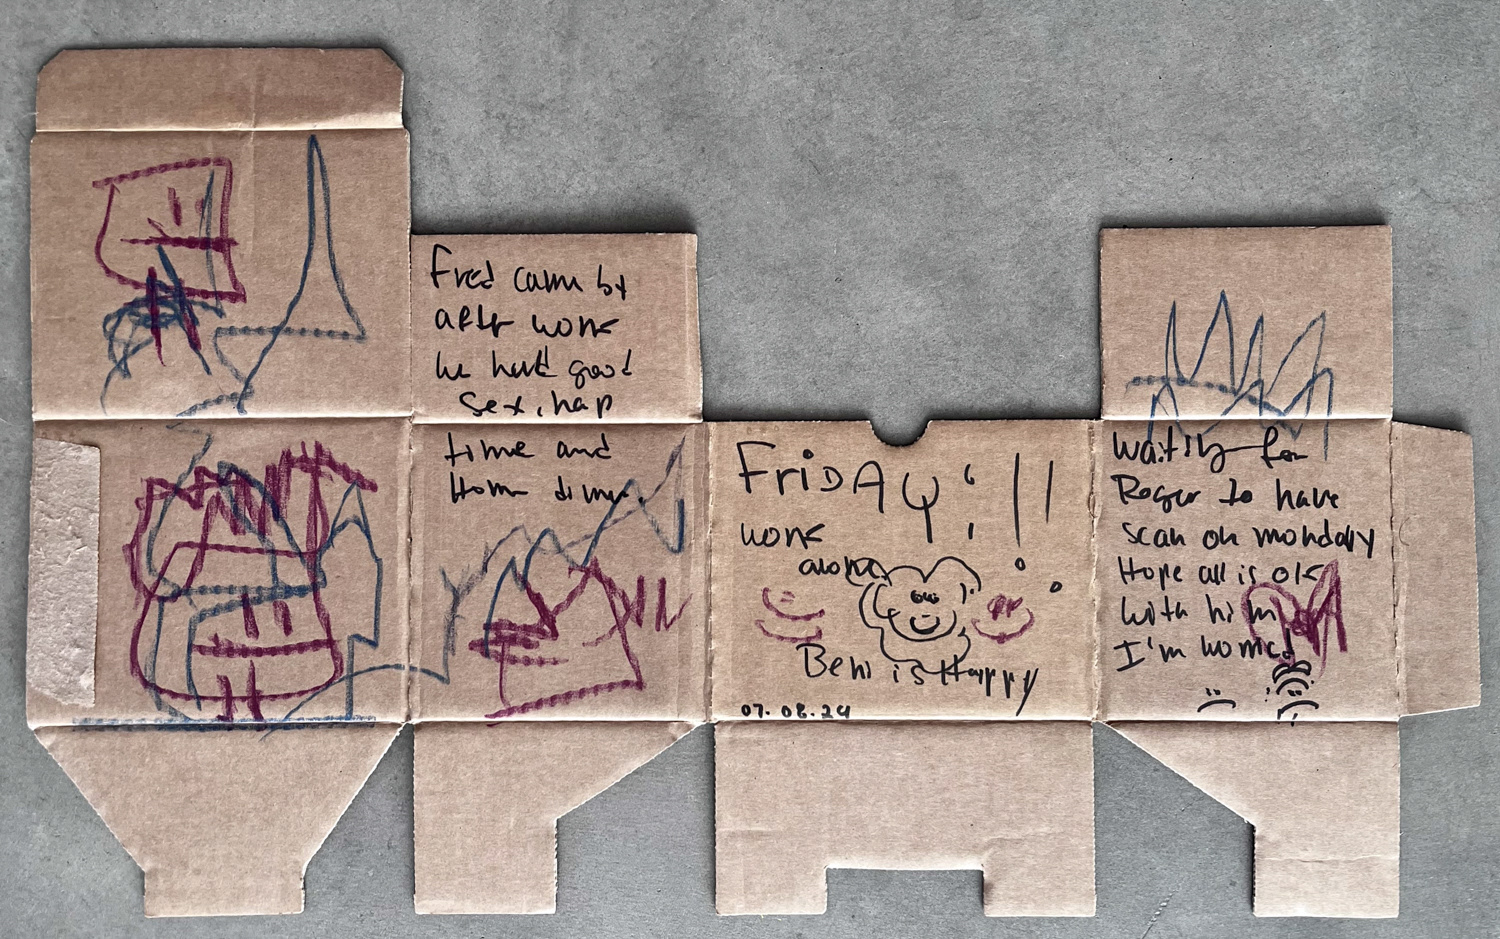 Fred cam by
after work
he had good
sex, hap
time and
Home time.
FRiDAY!!
work
alone
Ben is Happy
07.08.24
waitily for
Roger to have
scan on monday
Hope all is ok
with him
I'm worried